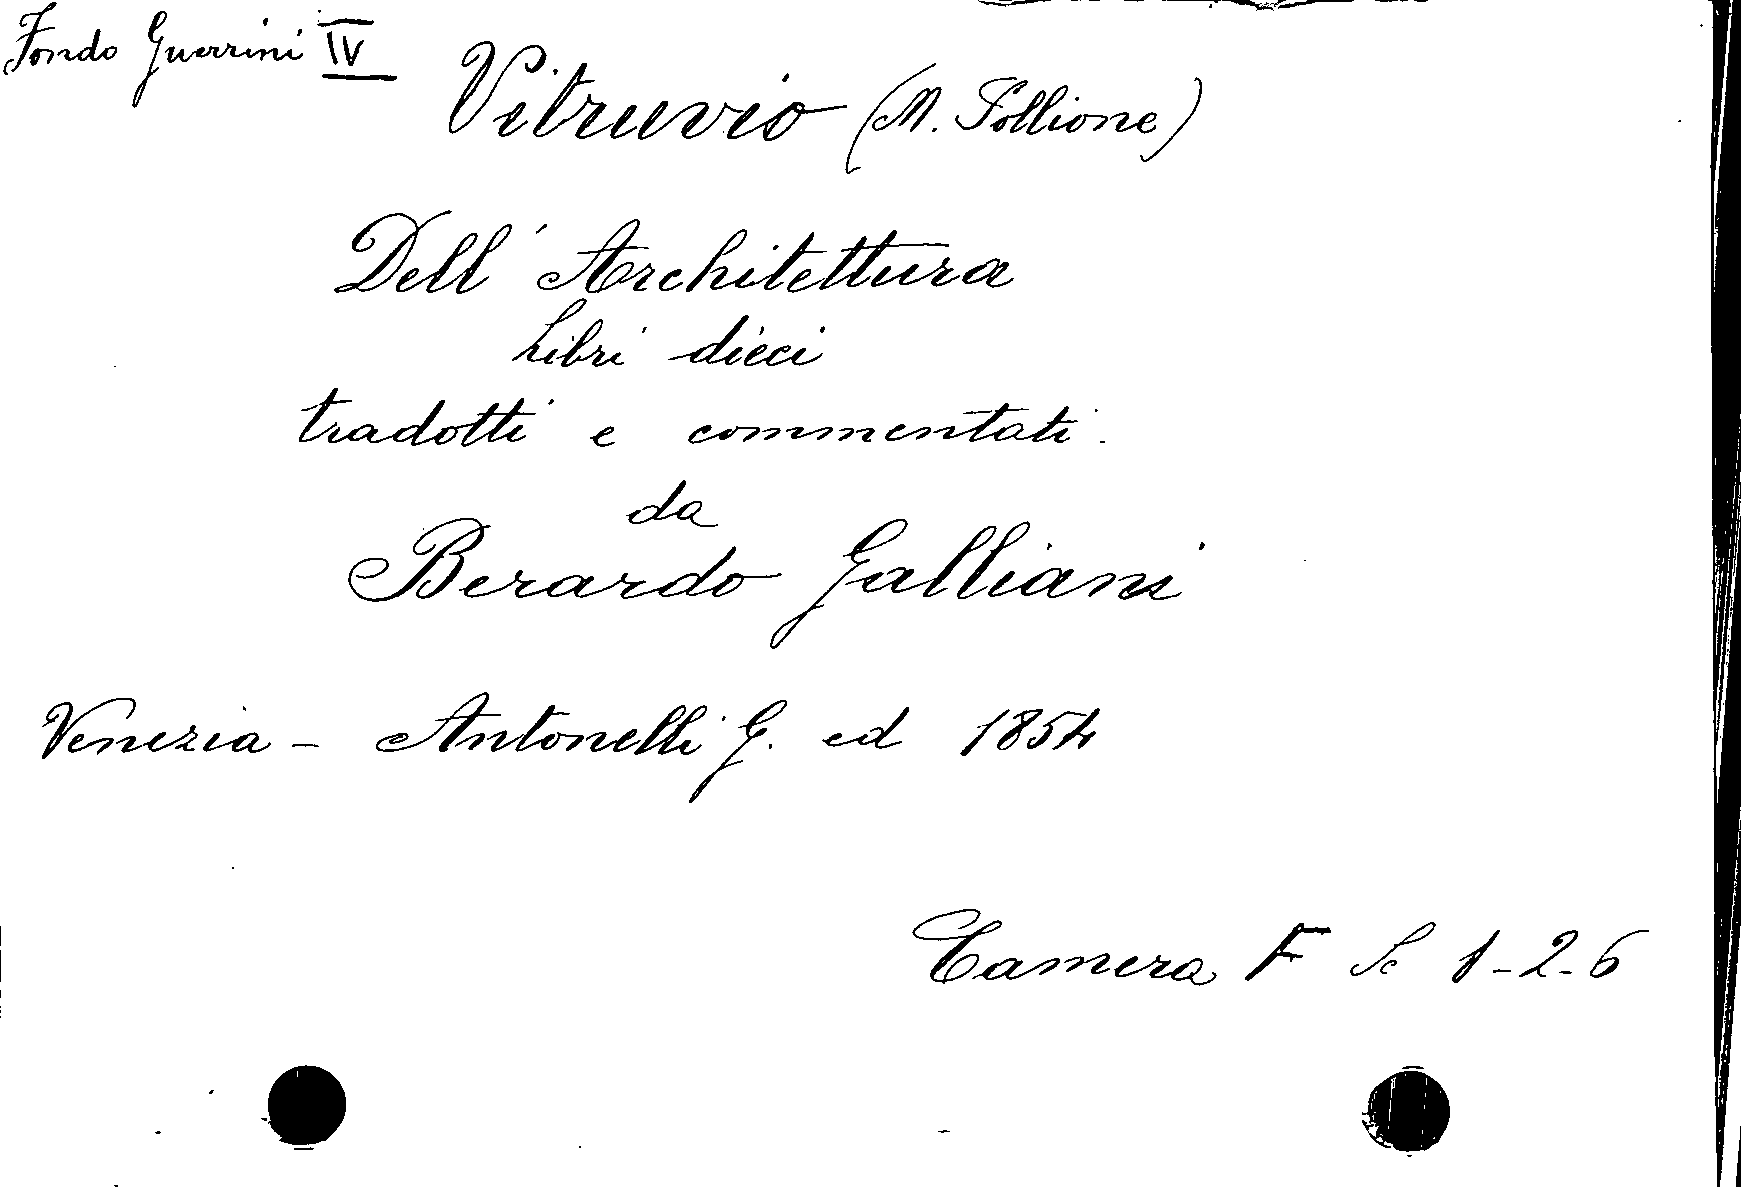 Fondo Guerrini IV
Vitruvio (M. Pollione)
Dell' Architettura
Libri dieci
tradotti e commentati.
da
Berardo Galliani
Venezia - Antonelli G. ed 1854
Camera F Sc 1-2-6